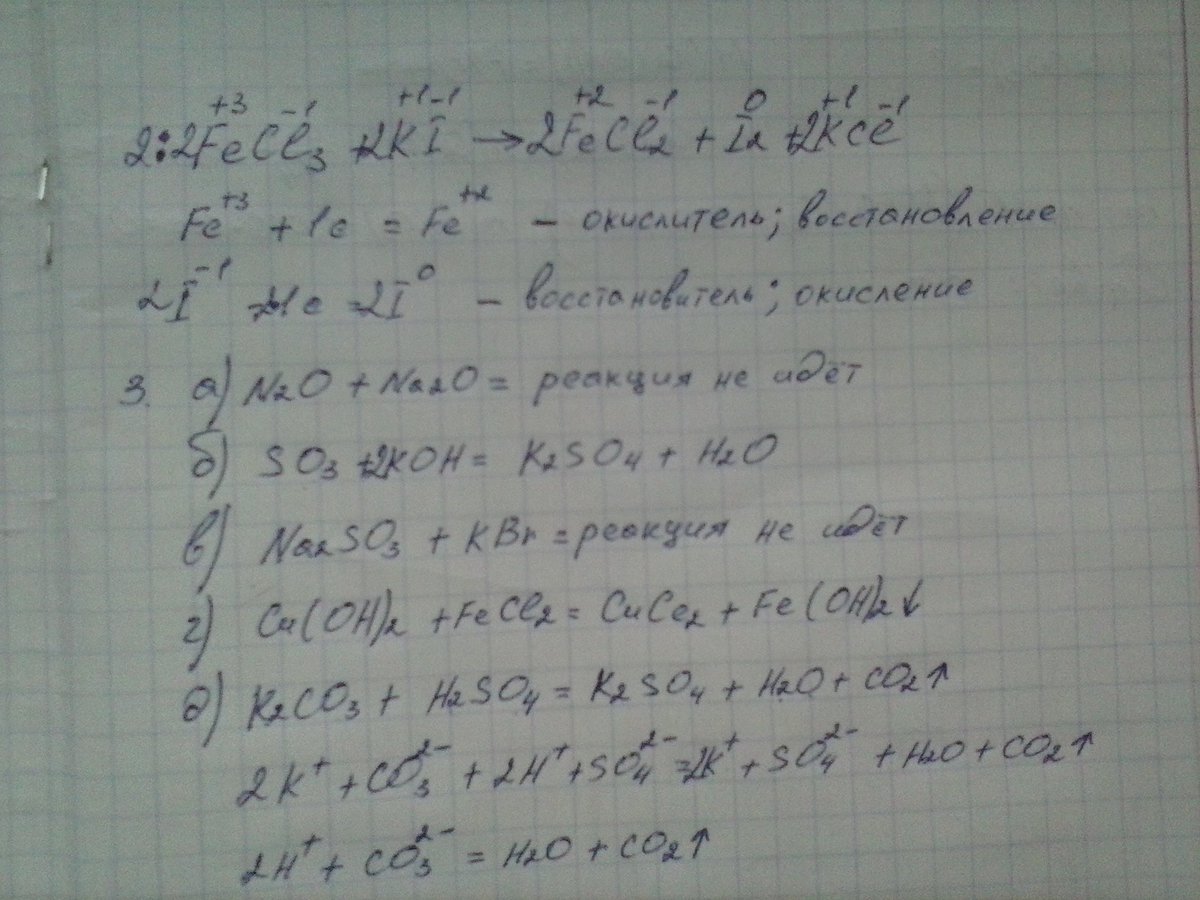 2: 2Fe⁺³Cl⁻¹₃ + 2K⁺¹I⁻¹ → 2Fe⁺²Cl⁻¹₂ + I⁰₂ + 2K⁺¹Cl⁻¹
Fe⁺³ + 1e = Fe⁺² – окислитель; восстановление
2I⁻¹ 2I⁰ – восстановитель; окисление
3. а) N₂O + Na₂O = реакция не идёт
б) SO₃ + 2KOH = K₂SO₄ + H₂O
в) Na₂SO₃ + KBr = реакция не идёт
г) Cu(OH)₂ + FeCl₂ = CuCl₂ + Fe(OH)₂↓
д) K₂CO₃ + H₂SO₄ = K₂SO₄ + H₂O + CO₂↑
2K⁺ + CO₃²⁻ + 2H⁺ + SO₄²⁻ = 2K⁺ + SO₄²⁻ + H₂O + CO₂↑
2H⁺ + CO₃²⁻ = H₂O + CO₂↑